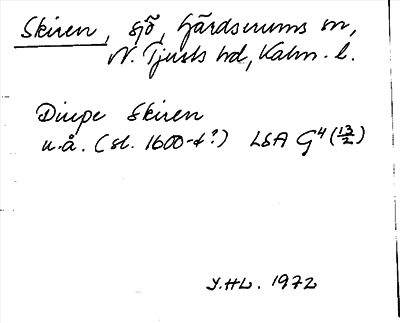 Skiren, sjö, Gärdserums sn,
N. Tjusts hd, Kalm. l.
Diupe Skiren
u.å. (sl. 1600-t?) LSA G4 (13/2)
Y.HL. 1972